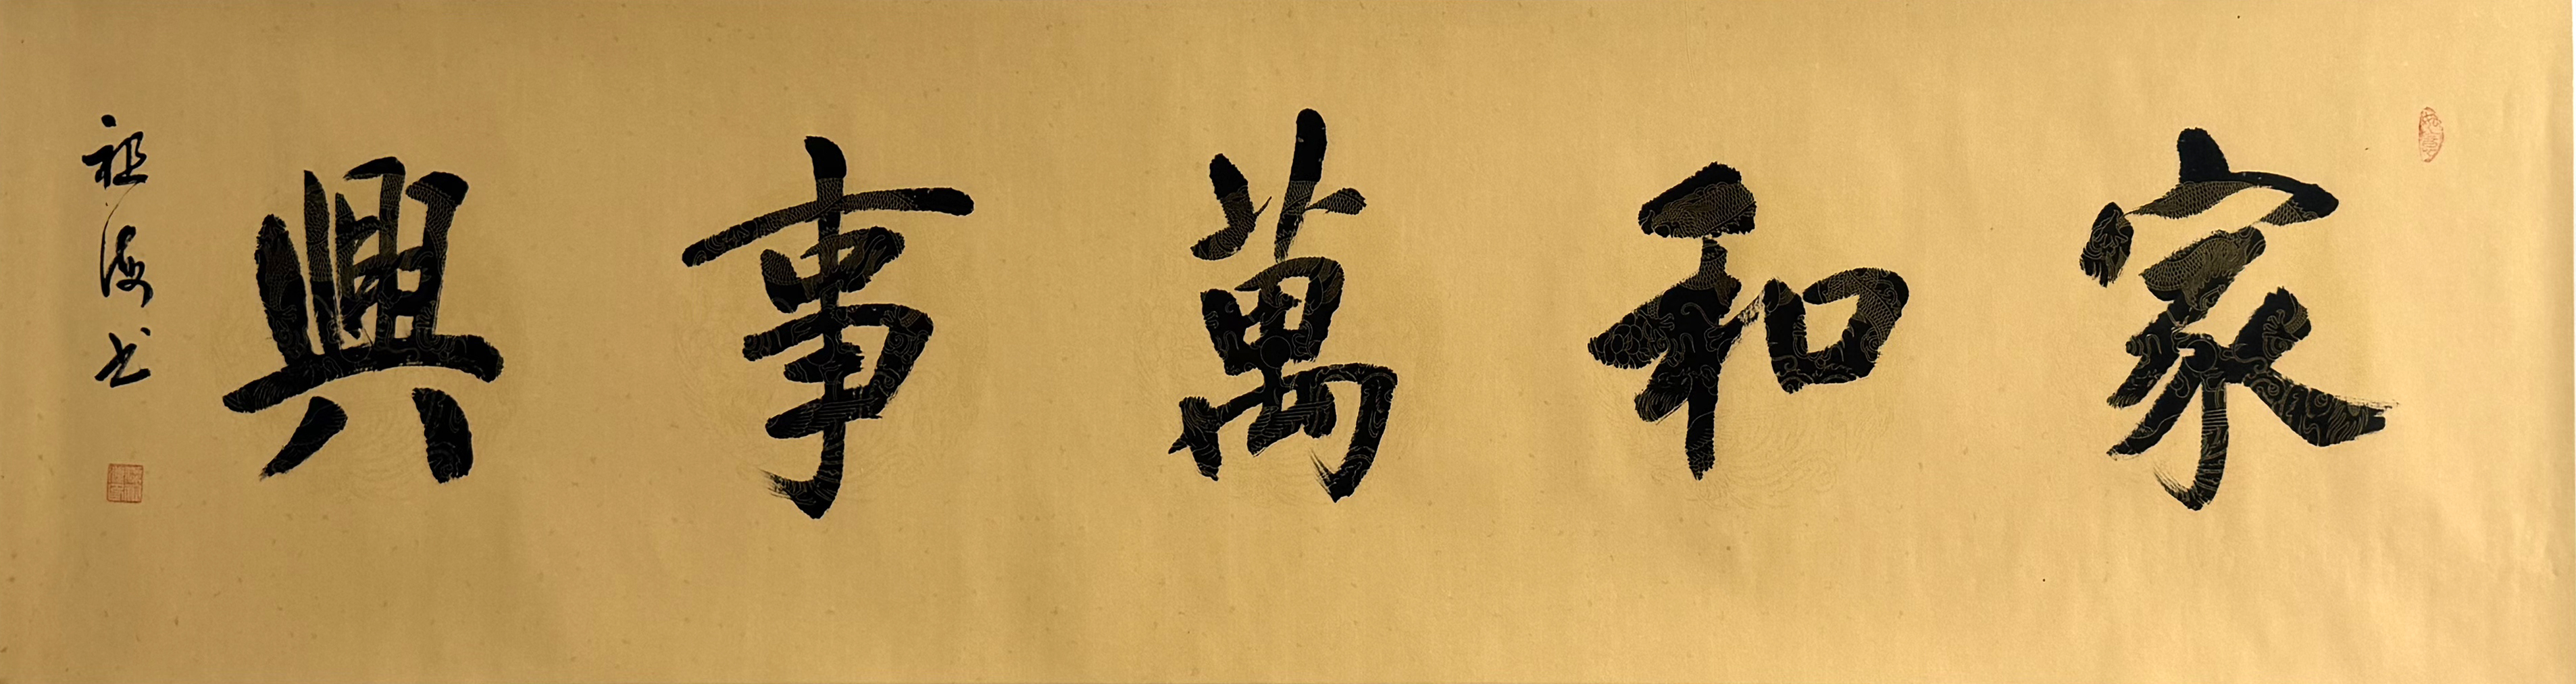 家和萬事興
祖海书